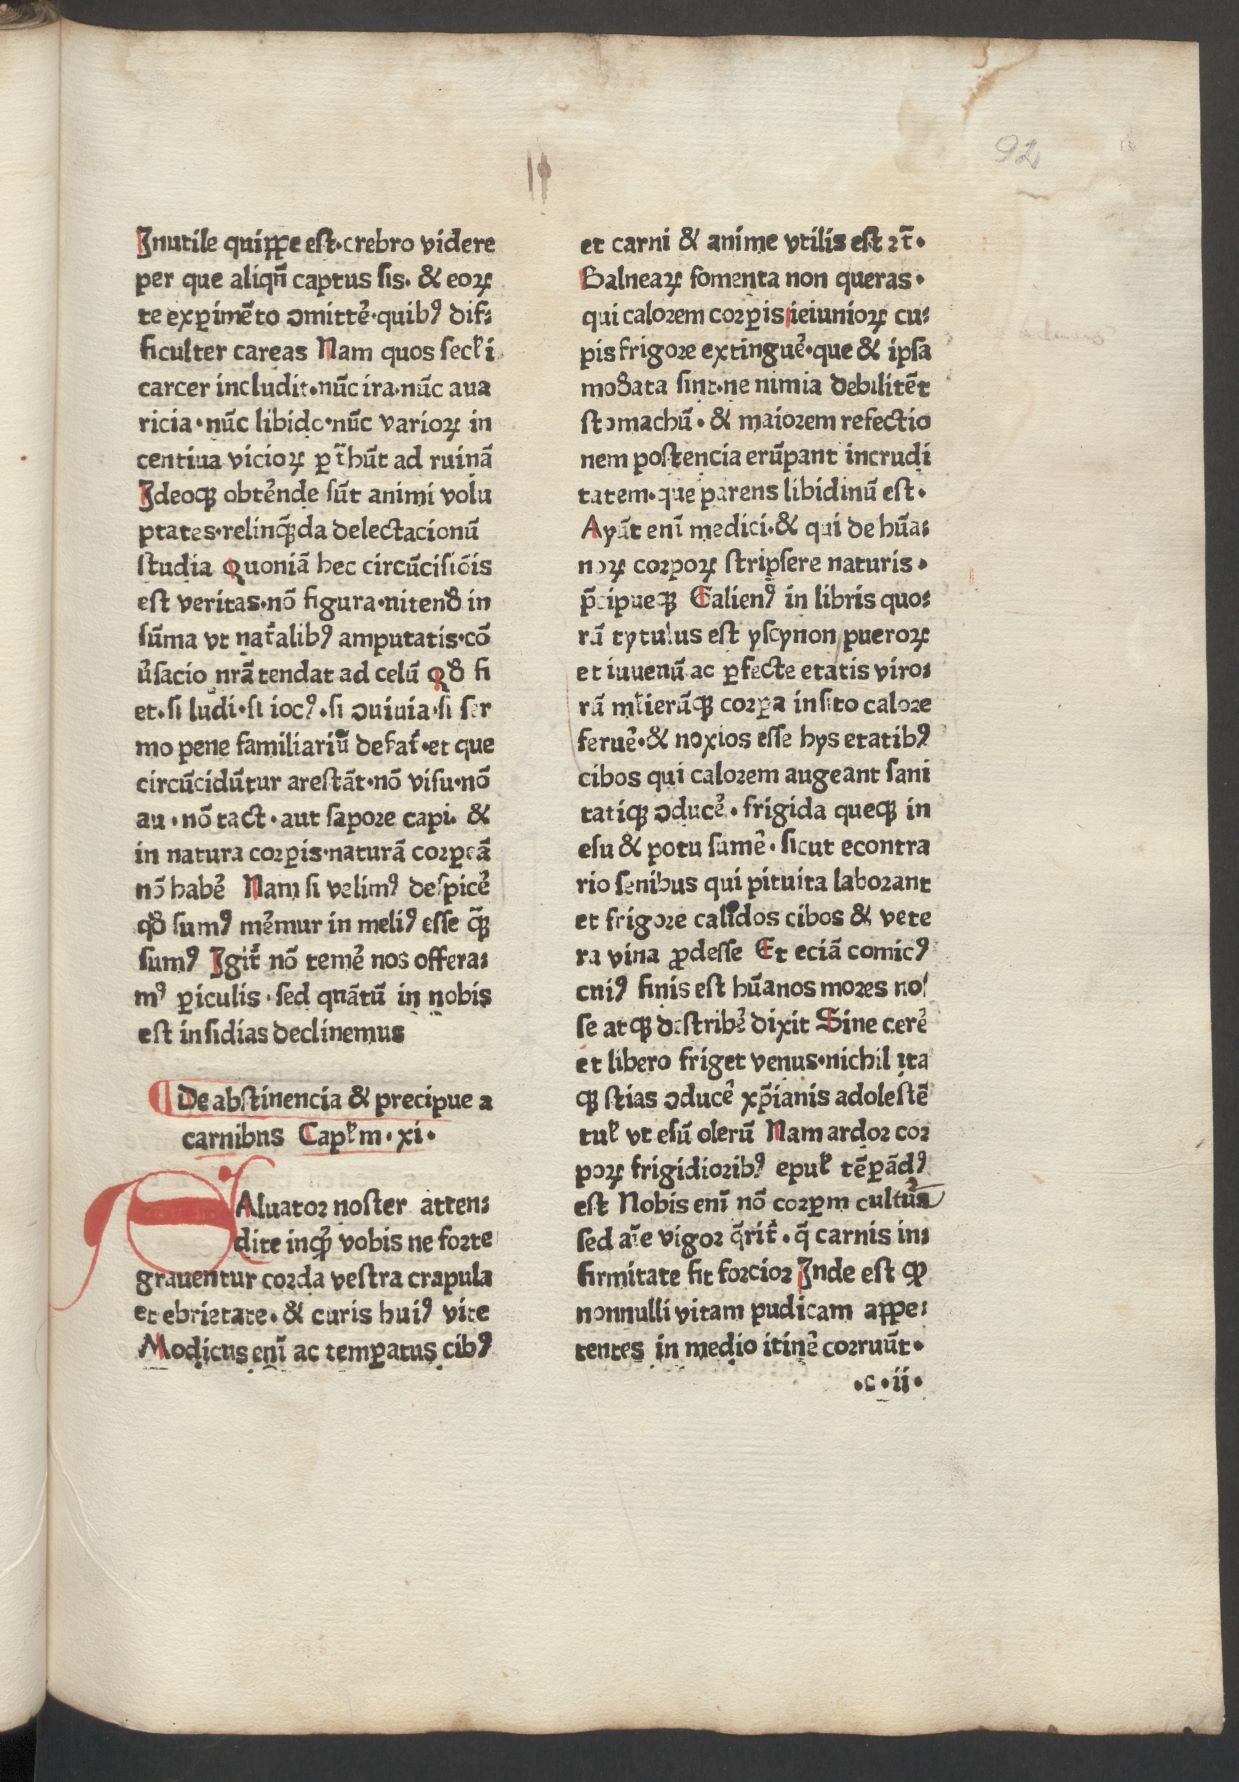 92
Jnutile quippe est·crebro videre
per que aliqñ captus sis· & eoꝝ
te exꝑimẽto ɔmittẽ·quibꝰ dif⸗
ficulter careas Nam quos secľi
carcer includit·nũc ira·nũc aua
ricia·nũc libido·nũc varioꝝ in
centiua vicioꝝ ꝑt̃hũt ad ruinã
Jdeoqꝫ obtẽnde sũt animi volu
ptates·relinq̃da delectacionũ
studia Quoniã hec circũcisiõis
est veritas·nõ figura·nitend̃ in
sũma vt nat̃alibꝰ amputatis·cõ
ũsacio nrã tendat ad celũ Qd̃ si
et·si ludi·si iocꝰ·si ɔuiuia·si ser
mo pene familiariũ defat̃·et que
circũcidũtur arestãt·nõ visu·nõ
au·nõ tact·aut sapore capi· &
in natura corꝑis·naturã corꝑeã
nõ habẽ Nam si velimꝰ despicẽ
qd̃ sumꝰ mẽmur in meliꝰ esse q̃ꝫ
sumꝰ Jgit̃ nõ temẽ nos offera⸗
mꝰ ꝑiculis·sed quãtũ in nobis
est insidias declinemus
De abstinencia & precipue a
carnibns Capľm·xi·
SAluator noster atten⸗
dite inqͥꝫ vobis ne forte
grauentur corda vestra crapula
et ebrietate·& curis huiꝰ vite
Modicus enĩ ac temꝑatus cibꝰ
et carni & anime vtilis est ⁊t̃·
Balneaꝝ fomenta non queras·
qui calorem corꝑis ieiunioꝝ cu⸗
pis frigore extinguẽ·que & ipsa
mod̃ata sint·ne nimia debilitẽt
stomachũ·& maiorem refectio
nem postencia erũpant incrudi
tatem·que parens libidinũ est·
Ayũt enĩ medici·& qui de hũa⸗
noꝝ corpoꝝ stripsere naturis·
p̃cipueqꝫ Galienꝰ in libris quo⸗
rũ tytulus est yscynon pueroꝝ
et iuuenũ ac ꝑfecte etatis viro⸗
rũ mľierũqꝫ corꝑa insito calore
feruẽ·& noxios esse hys etatibꝰ
cibos qui calorem augeant sani
tatiqꝫ ɔducẽ·frigida queqꝫ in
esu & potu sumẽ·sicut econtra
rio senibus qui pituita laborant
et frigore calidos cibos & vete
ra vina ꝓdesse Et eciã comicꝰ
cuiꝰ finis est hũanos mores nos
se atqꝫ destribẽ dixit Sine cerẽ
et libero friget venus·nichil ita
qꝫ stias ɔducẽ xp̃ianis adolestẽ
tuľ vt esũ olerũ Nam ardor cor
poꝝ frigidioribꝰ epuľ tẽꝑãdꝰ
est Nobis enĩ nõ corꝑm cultũa
sed aĩe vigor q̃rit̃·q̃ carnis in⸗
firmitate fit forcior Jnde est qꝫ
nonnulli vitam pudicam appe⸗
tentes in medio itinẽ corruũt·
·c·ii·